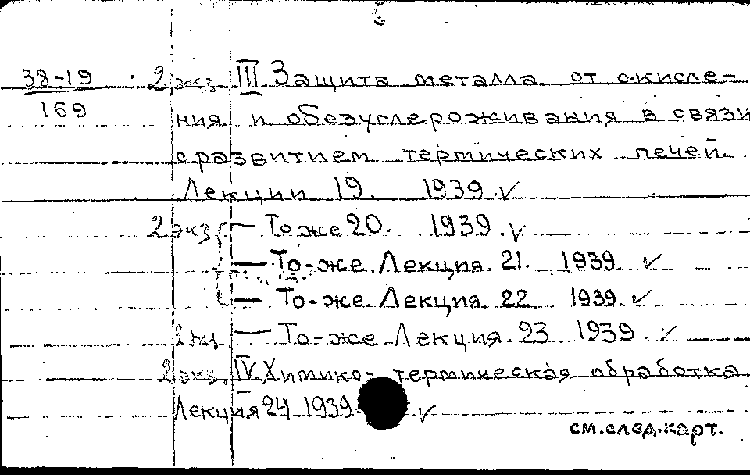 38-19 2 экз III Защита металла от окисле-
169
ния и обезуглероживания в связи
с развитием термических печей.
Лекции 19. 1939. ✓
2 экз — То же 20. 1939. ✓
— То-же. Лекция. 21. 1939. ✓
— То-же. Лекция. 22 1939. ✓
2 экз — То-же Лекция. 23 1939. ✓
2 экз. IV. Химико-термическая обработка
Лекция 24 1939 ✓
см.след.карт.